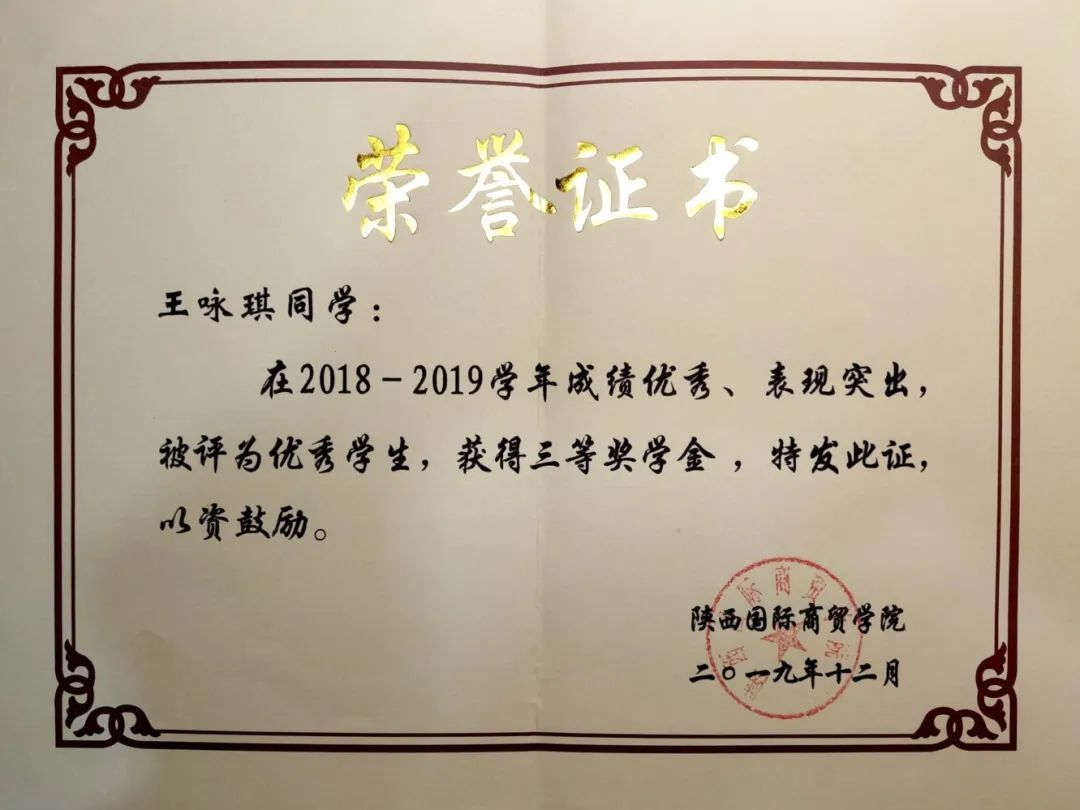 荣誉证书
王咏琪同学：
在2018－2019学年成绩优秀、表现突出，
被评为优秀学生，获得三等奖学金，特发此证，
以资鼓励。
陕西国际商贸学院
二〇一九年十二月
陕西国际商贸学院